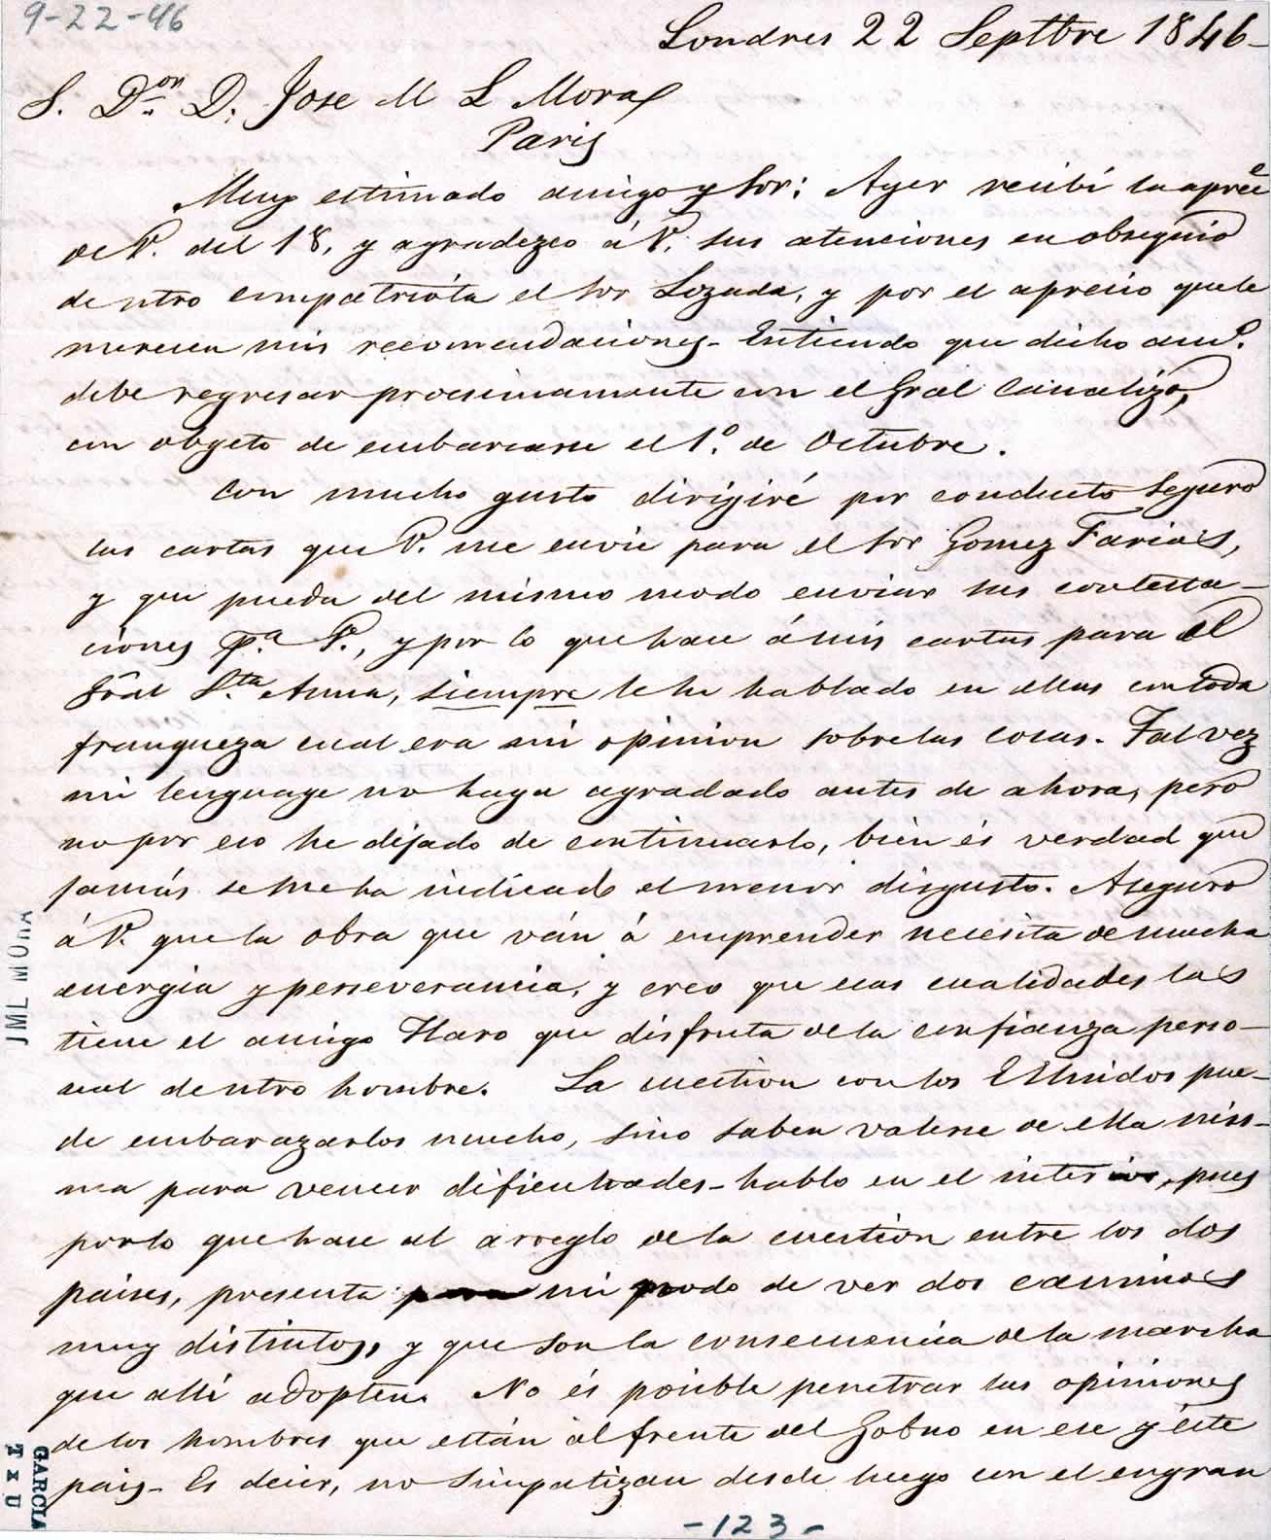 9-22-46
Londres 22 Septtbre 1846-
S. Dⁿ. D. Jose M L Mora
Paris
Muy estimado amigo y Sor: Ayer recibí la aprē
de V. del 18, y agradezco á V. sus atenciones en obsequio
de ntro compatriota el Sor Lozada, y por el aprecio que le
merecen mis recomendaciones- Entiendo que dicho am.º
debe regresar procsimamente con el Gral Canalizo,
con obgeto de embarcarse el 1º. de Octubre.
Con mucho gusto dirigiré por conducto seguro
las cartas que V. me envie para el Sor Gomez Farias,
y que pueda del mismo modo enviar sus contesta-
ciones p.ª V., y por lo que hace á mis cartas para el
Grāl S.ta Anna, siempre le he hablado en ellas con toda
franqueza cual era mi opinion sobre las cosas. Tal vez
mi lenguage no haya agradado antes de ahora, pero
no por eso he dejado de continuarlo, bien és verdad que
jamás se me ha indicado el menor disgusto. Aseguro
á V. que la obra que ván á emprender necesita de mucha
energia y perseverancia, y creo que esas cualidades las
tiene el amigo Haro que disfruta de la confianza perso-
nal de ntro hombre. La cuestion con los E Unidos pue-
de embarazarlos mucho, sino saben valerse de ella mis-
ma para vencer dificultades- hablo en el interior, pues
por lo que hace al arreglo de la cuestion entre los dos
paises, presenta mi modo de ver dos caminos
muy distintos, y que son la consecuencia de la marcha
que allí adopten. No és posible penetrar las opiniones
de los hombres que están al frente del Gobno en ese y éste
pais- Es decir, no simpatizan desde luego con el engran
-123-
JML MORA
GARCIA
TxU